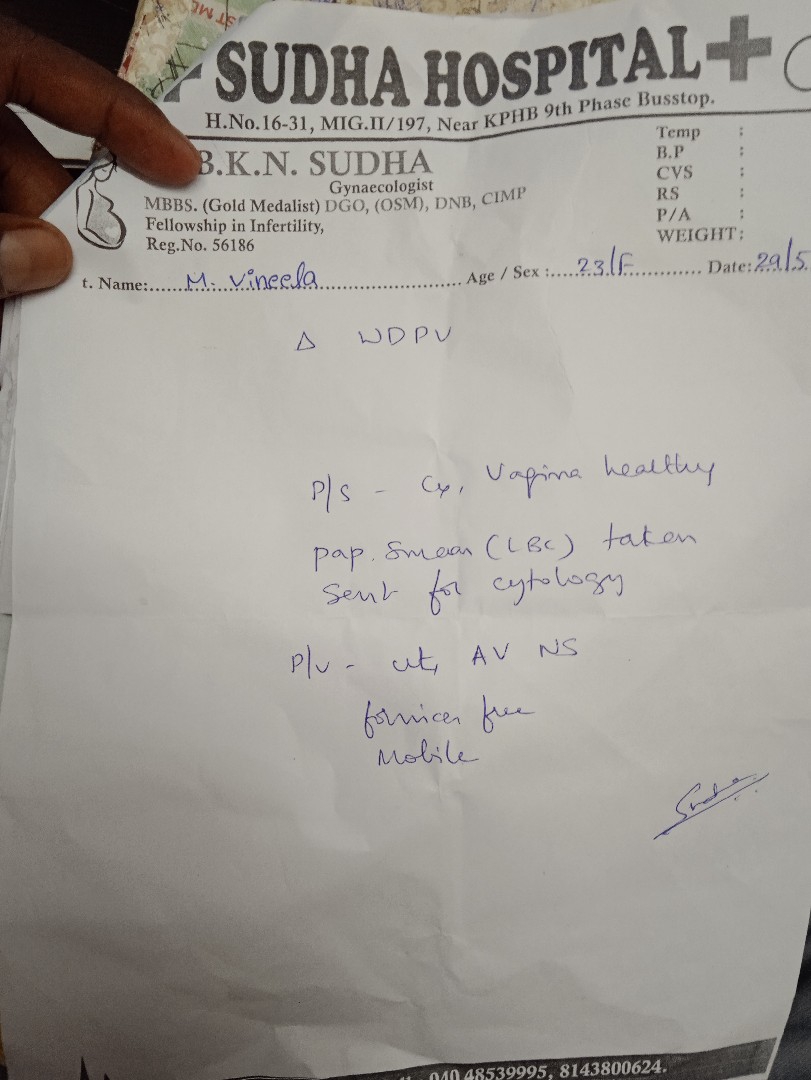 SUDHA HOSPITAL
H.No.16-31, MIG.II/197, Near KPHB 9th Phase Busstop.
B.K.N. SUDHA
Gynaecologist
MBBS. (Gold Medalist) DGO, (OSM), DNB, CIMP
Fellowship in Infertility,
Reg.No. 56186
Temp :
B.P :
CVS :
RS :
P/A :
WEIGHT:
t. Name:......M. Vineela.............................. Age / Sex :....23/F............. Date:29/5
Δ WDPV
P/S - Cx, Vagina healthy
pap. Smear (LBC) taken
Sent for cytology
P/V - ut, AV NS
fornices free
Mobile
040 48539995, 8143800624.